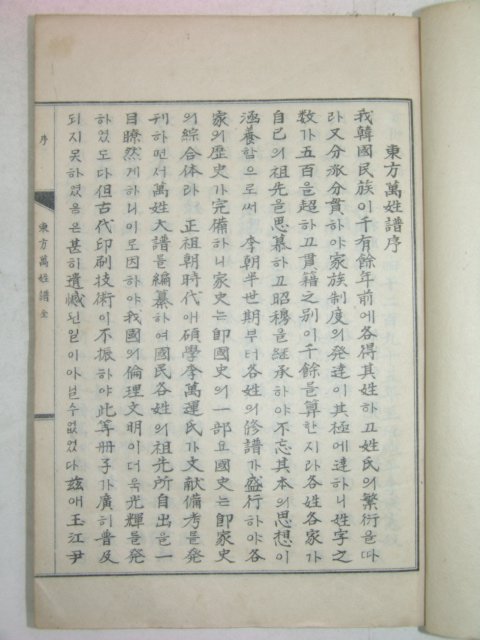 東方萬姓譜序
我韓國民族이千有餘年前에各得其姓하고姓氏의繁衍을따
라又分派分貫하야家族制度의發達이其極에達하니姓字之
数가五百을超하고貫籍之别이千餘를算한지라各姓各家가
自己의祖先을思慕하고昭穆을継承하야不忘其本의思想이
涵養함으로써 李朝半世期부터各姓의修譜가盛行하야各
家의歷史가完備하니家史는即國史의一部요國史는即家史
의綜合体라 正祖朝時代에碩學李萬運氏가文献備考를發
刊하면서萬姓大譜를編纂하여國民各姓의祖先所自出을一
目瞭然케하니이로因하야我國의倫理文明이더욱光輝를發
하였도다但古代印刷技術이不振하야此等册子가廣히普及
되지못하였음은甚히遺憾된일이아닐수없었다玆에玉江尹
序
東方萬姓譜全